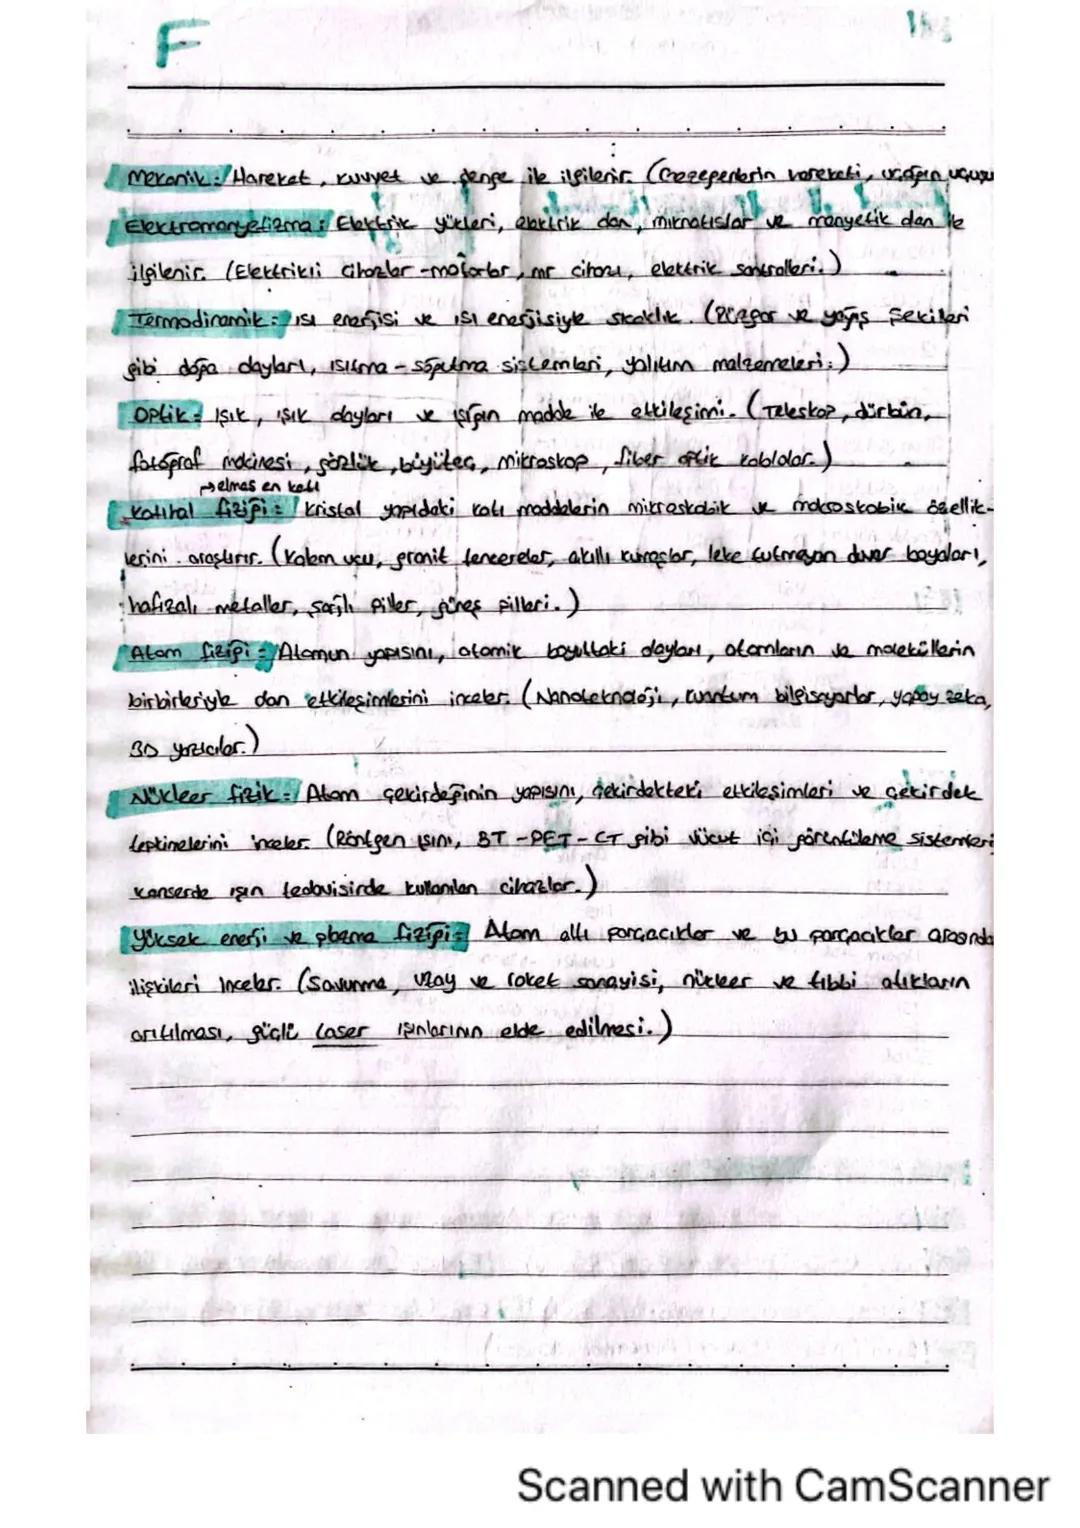 F
Mekanik: Hareket, kuvvet ve denge ile ilgilenir. (Gezegenlerin hareketi, uçağın uçuşu
Elektromanyetizma: Elektrik yükleri, elektrik alan, mıknatıslar ve manyetik alan ile
ilgilenir. (Elektrikli cihazlar - motorlar, mr cihazı, elektrik santralleri.)
Termodinamik: ısı enerjisi ve ısı enerjisiyle sıcaklık. (Rüzgar ve yağış şekilleri
gibi doğa olayları, ısıtma - soğutma sistemleri, yalıtım malzemeleri.)
Optik: Işık, ışık olayları ve ışığın madde ile etkileşimi. (Teleskop, dürbün,
fotoğraf makinesi, gözlük, büyüteç, mikroskop, fiber optik kablolar.)
→elmas en katı
Katıhal fiziği: Kristal yapıdaki katı maddelerin mikroskobik ve makroskobik özellik-
lerini araştırır. (Kalem ucu, granit tencereler, akıllı kumaşlar, leke tutmayan duvar boyaları,
hafızalı metaller, şarjlı piller, güneş pilleri.)
Atom fiziği: Atomun yapısını, atomik boyuttaki olayları, atomların ve moleküllerin
birbirleriyle olan etkileşimlerini inceler. (Nanoteknoloji, kuantum bilgisayarlar, yapay zeka,
3D yazıcılar.)
Nükleer fizik: Atom çekirdeğinin yapısını, çekirdekteki etkileşimleri ve çekirdek
tepkimelerini inceler. (Röntgen ışını, BT - PET - CT gibi vücut içi görüntüleme sistemleri
kanserde ışın tedavisinde kullanılan cihazlar.)
Yüksek enerji ve plazma fiziği: Atom altı parçacıklar ve bu parçacıklar arasında
ilişkileri inceler. (Savunma, uzay ve roket sanayisi, nükleer ve tıbbi atıkların
arıtılması, güçlü laser ışınlarının elde edilmesi.)
Scanned with CamScanner